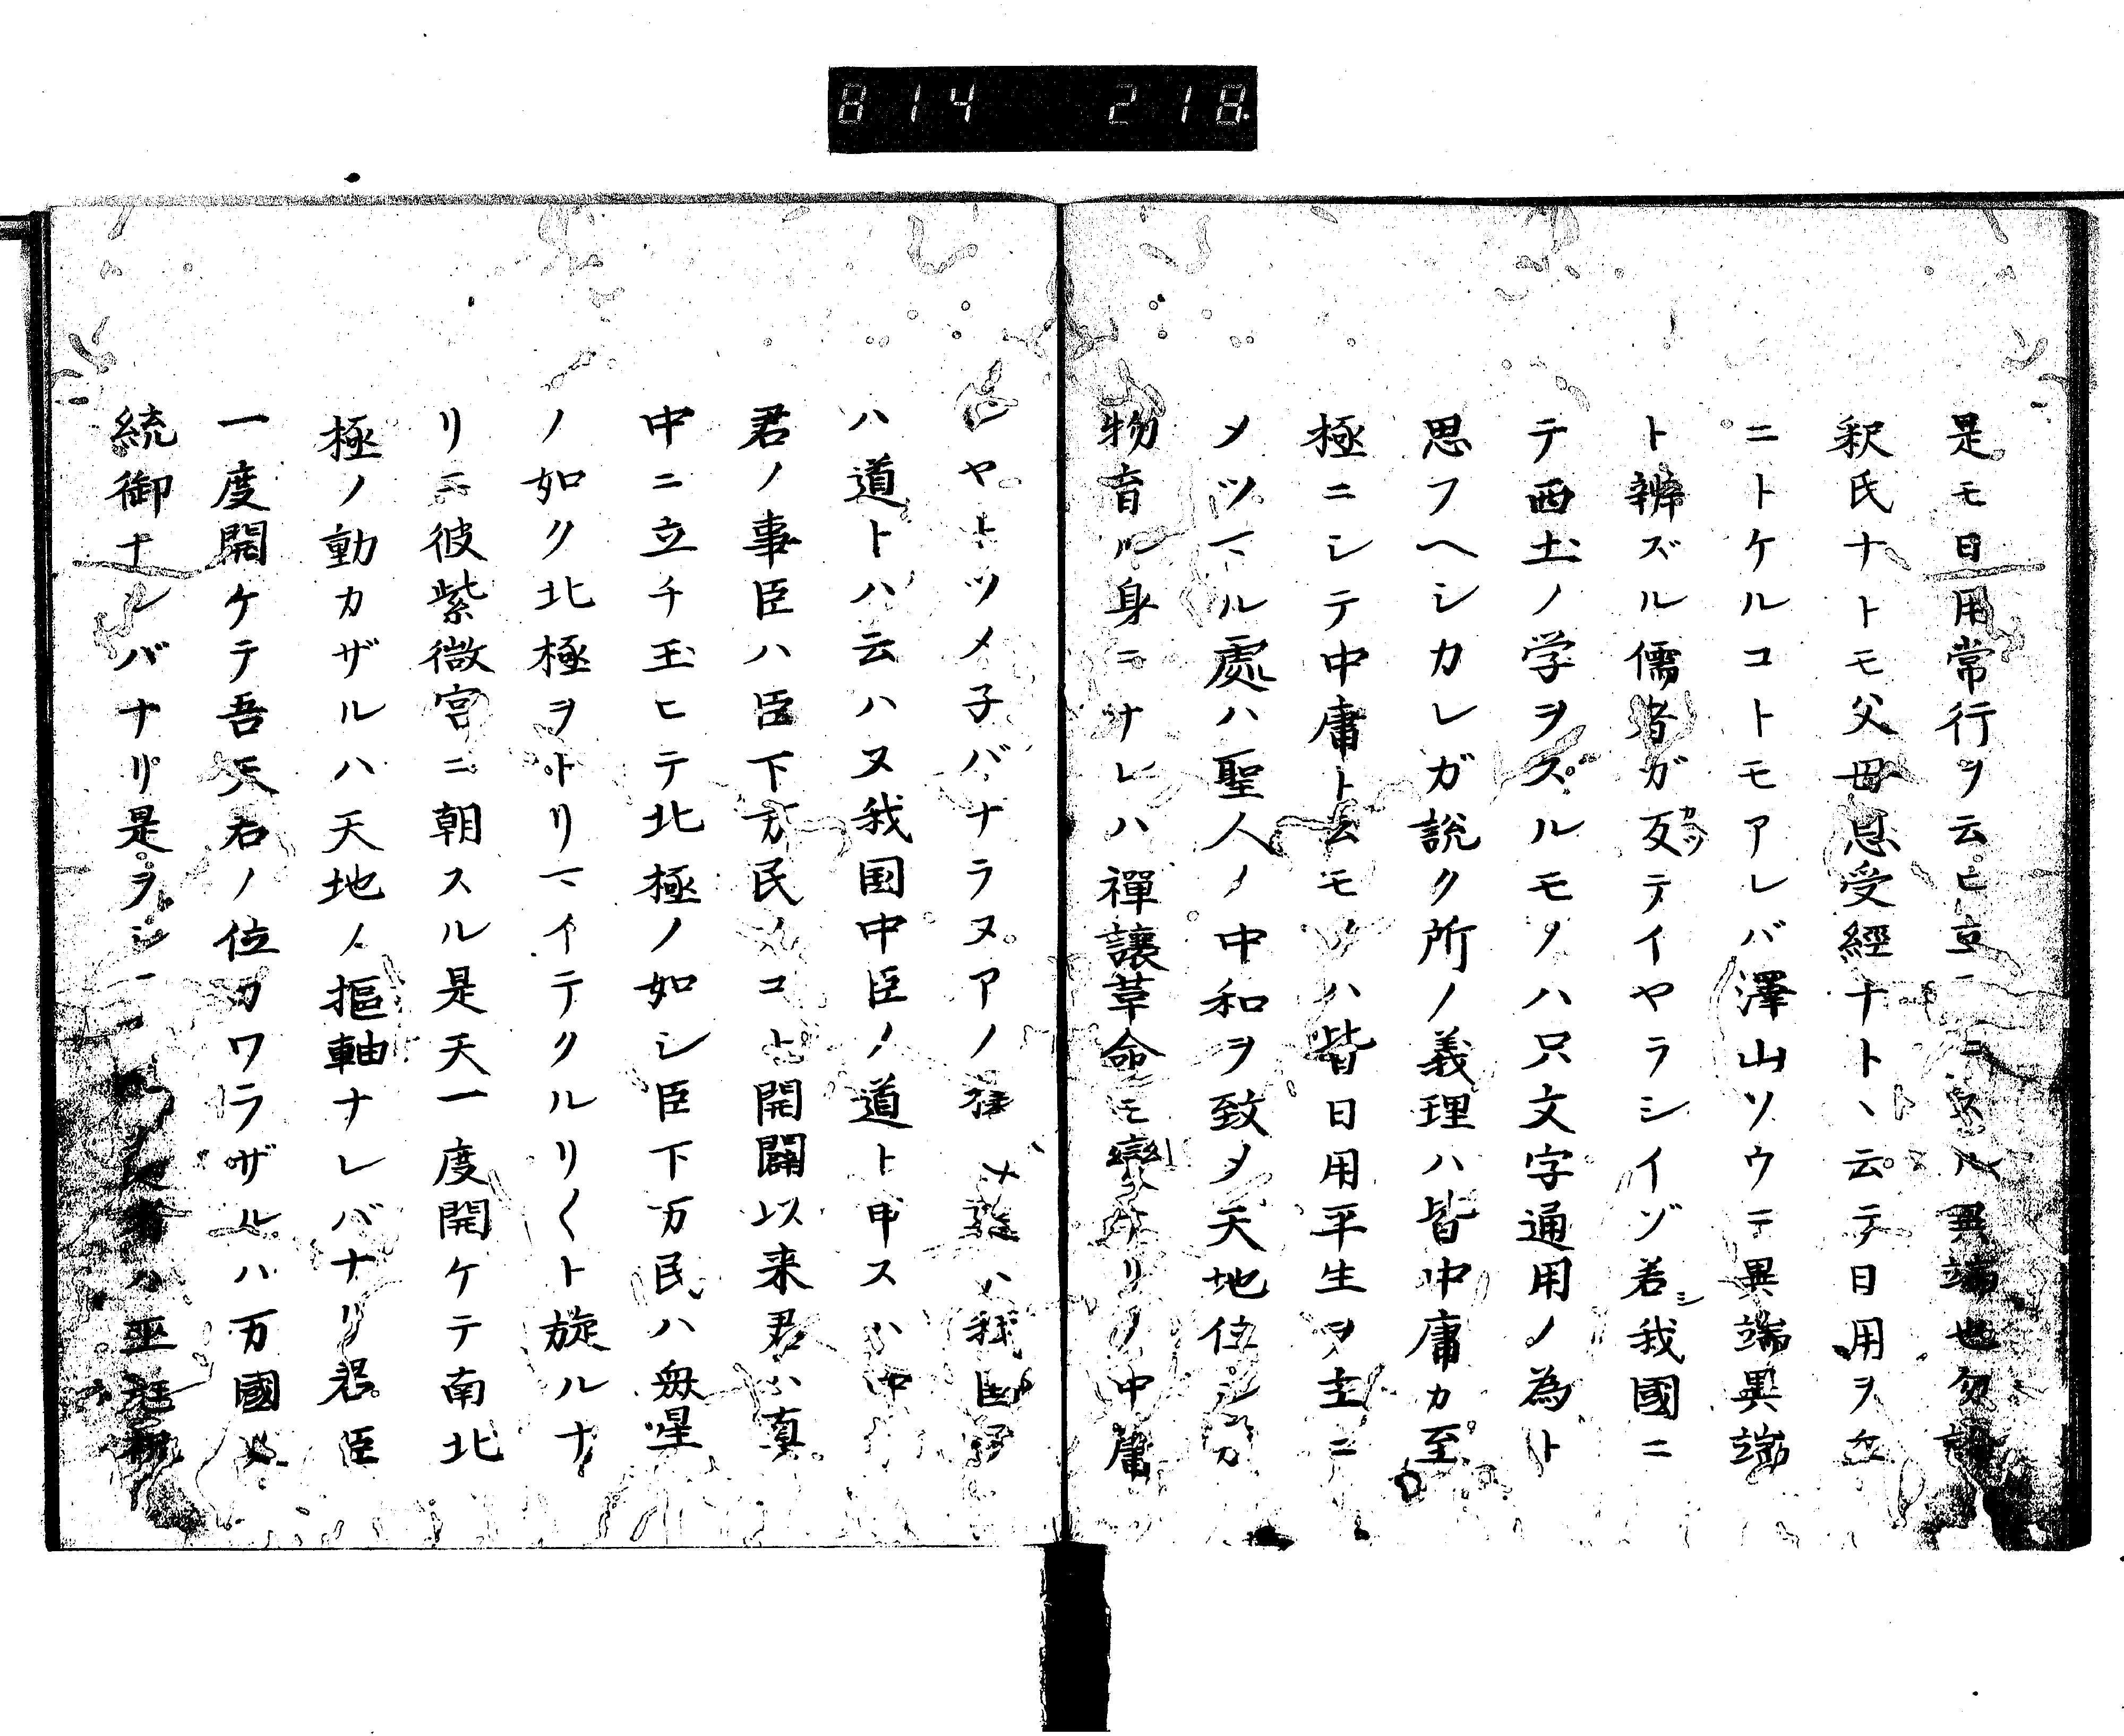 814 218
是モ日用常行ヲ云ヒ立 ル異端也勿
釈氏ナトモ父母恩受経ナトヽ云テ日用ヲ云
ニトケルコトモアレバ澤山ソウテ異端異端
ト辨ズル儒者ガ反テイヤラシイゾ若シ我國ニ
カヘツ
テ西土ノ学ヲスルモノハ只文字通用ノ為ト
思フヘシカレガ説ク所ノ義理ハ皆中庸カ至
極ニシテ中庸ト云モノハ皆日用平生ヲ主ニ
メツマル處ハ聖人ノ中和ヲ致メ天地位シ万
物育ル身ニナレハ禪譲革命モ変ナリノ中庸
ヤトツメ子バナラヌアノ 我国
ハ道トハ云ハヌ我国中臣ノ道ト申スハ中
君ノ事臣ハ臣下万民ノコト開闢以来君ハ真
中ニ立チ玉ヒテ北極ノ如シ臣下万民ハ衆星
ノ如ク北極ヲトリマイテクルリ〱ト旋ルナ
リニ彼紫微宮ニ朝スル是天一度開ケテ南北
極ノ動カザルハ天地ノ摳軸ナレバナリ君臣
一度開ケテ吾天君ノ位カワラザルハ万國
統御ナレバナリ是ヲシ ハ